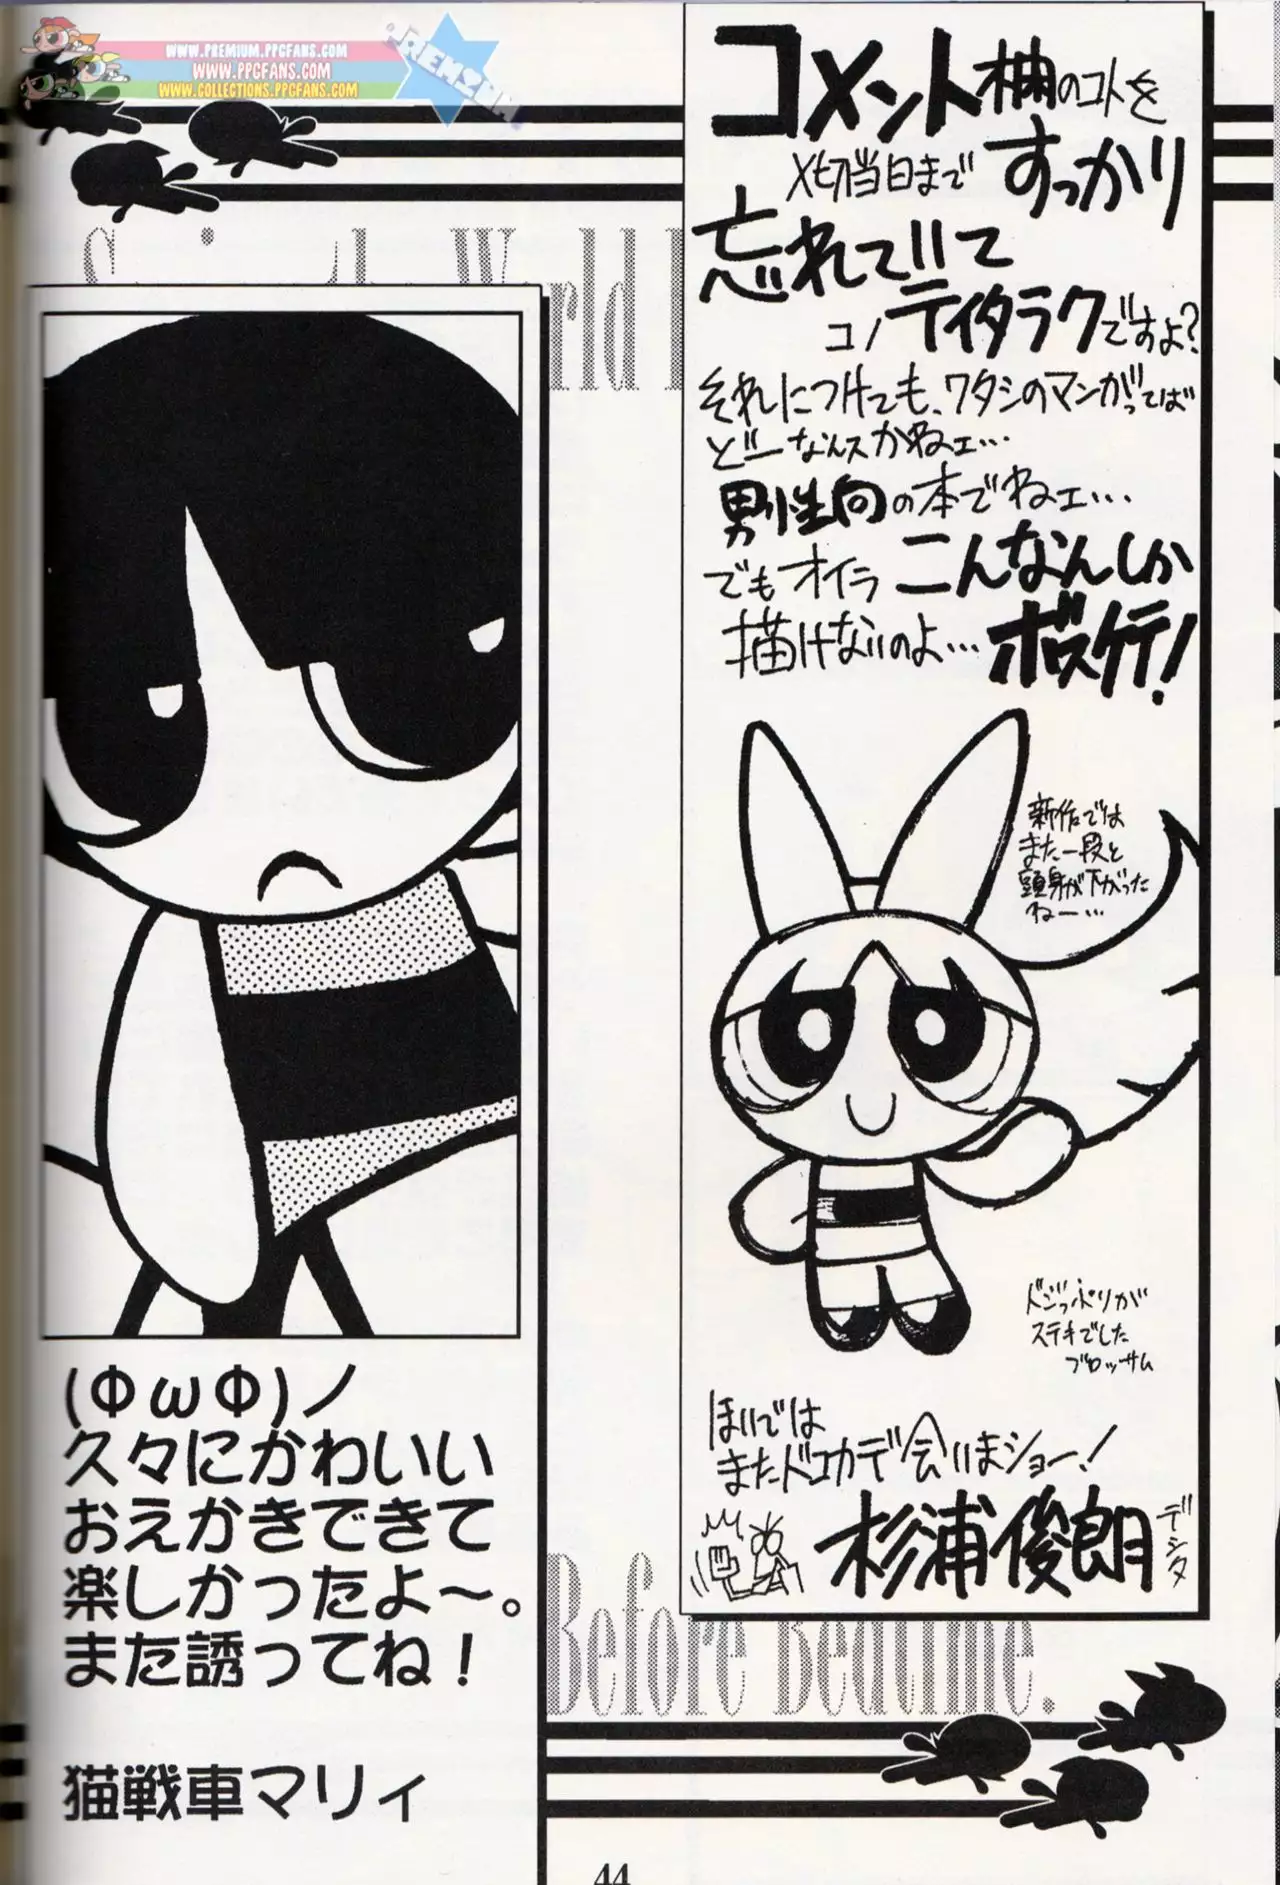 WWW.PREMIUM.PPGFANS.COM
WWW.PPGFANS.COM
WWW.COLLECTIONS.PPGFANS.COM
PREMIUM
コメント欄のコトを
〆切当日まですっかり
忘れていて
コノテイタラクですよ?
それにつけても、ワタシのマンガってば
どーなんスかねェ…
男性向の本でねェ…
でもオイラこんなんしか
描けないのよ…ボスケテ!
新作では
また一段と
頭身が下がった
ねー…
ドンッポリが
ステキでした
ブロッサム
ほいでは
またドコカデ会いまショー!
杉浦俊朗
デシタ
(ΦωΦ)ノ
久々にかわいい
おえかきできて
楽しかったよ~。
また誘ってね!
猫戦車マリィ
World
Before Bedtime.
44